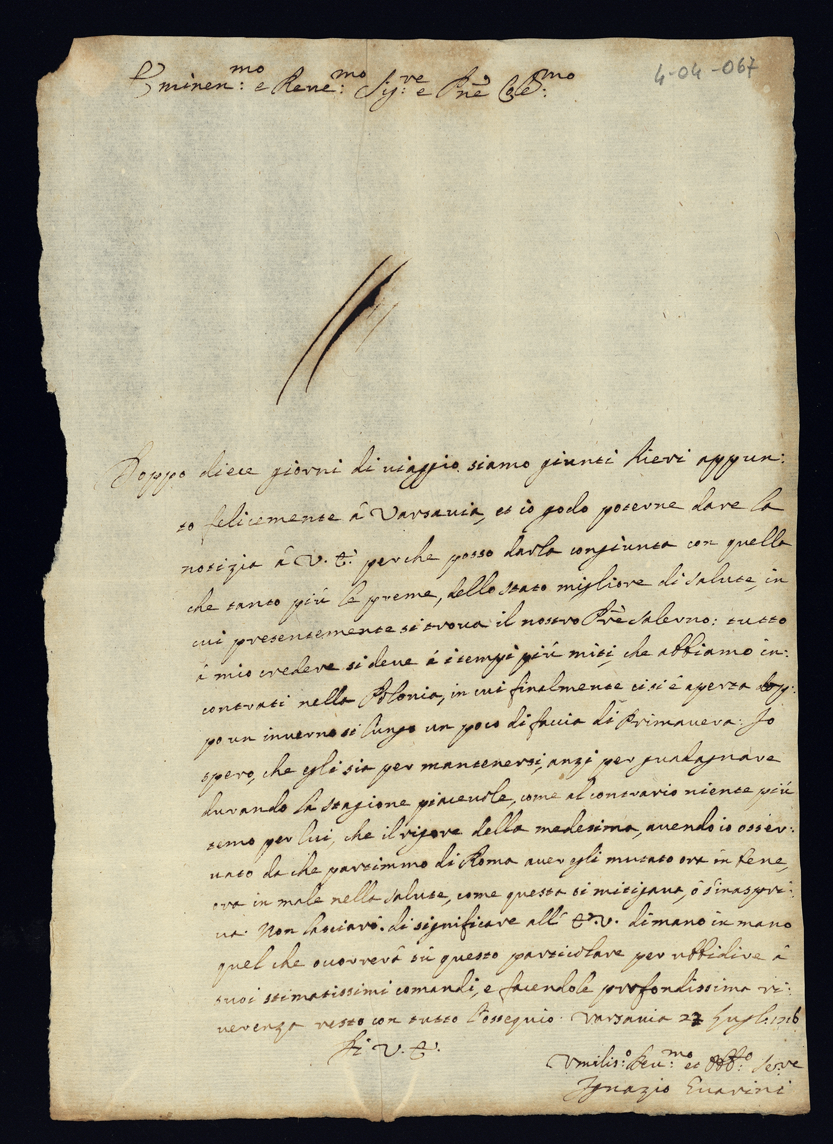 4-04-067
Eminen:mo e Reve:mo Sig:re e Pne Col:mo
Doppo diece giorni di viaggio siamo giunti hieri appun:
to felicemente à Varsavia, et io godo poterne dare la
notizia à V. E. perche posso darla congiunta con quella
che tanto più le preme, dello stato migliore di salute, in
cui presentemente si trova il nostro Prè Salerno: tutto
à mio credere si deve à i tempi più miti, che abbiamo in:
contrati nella Polonia, in cui finalmente ci si è aperta dop:
po un inverno sì lungo un poco di faccia di Primavera. Io
spero, che egli sia per mantenersi, anzi per guadagnare
durando la stagione piacevole, come al contrario niente più
temo per lui, che il rigore della medesima, avendo io osser:
vato da che partimmo di Roma aver egli mutato ora in bene,
ora in male nella salute, come questa si mitigava, ò s'inaspri:
va. Non lasciarò di significare all' E. V. di mano in mano
quel che occorrerà sù questo particolare per ubbidire à
suoi stimatissimi comandi, e facendole profondissima ri:
verenza resto con tutto l'ossequio. Varsavia 27 1716
Di V. E.
Umilis:o Dev:mo et Obb:to Ser:ve
Ignazio Guarini